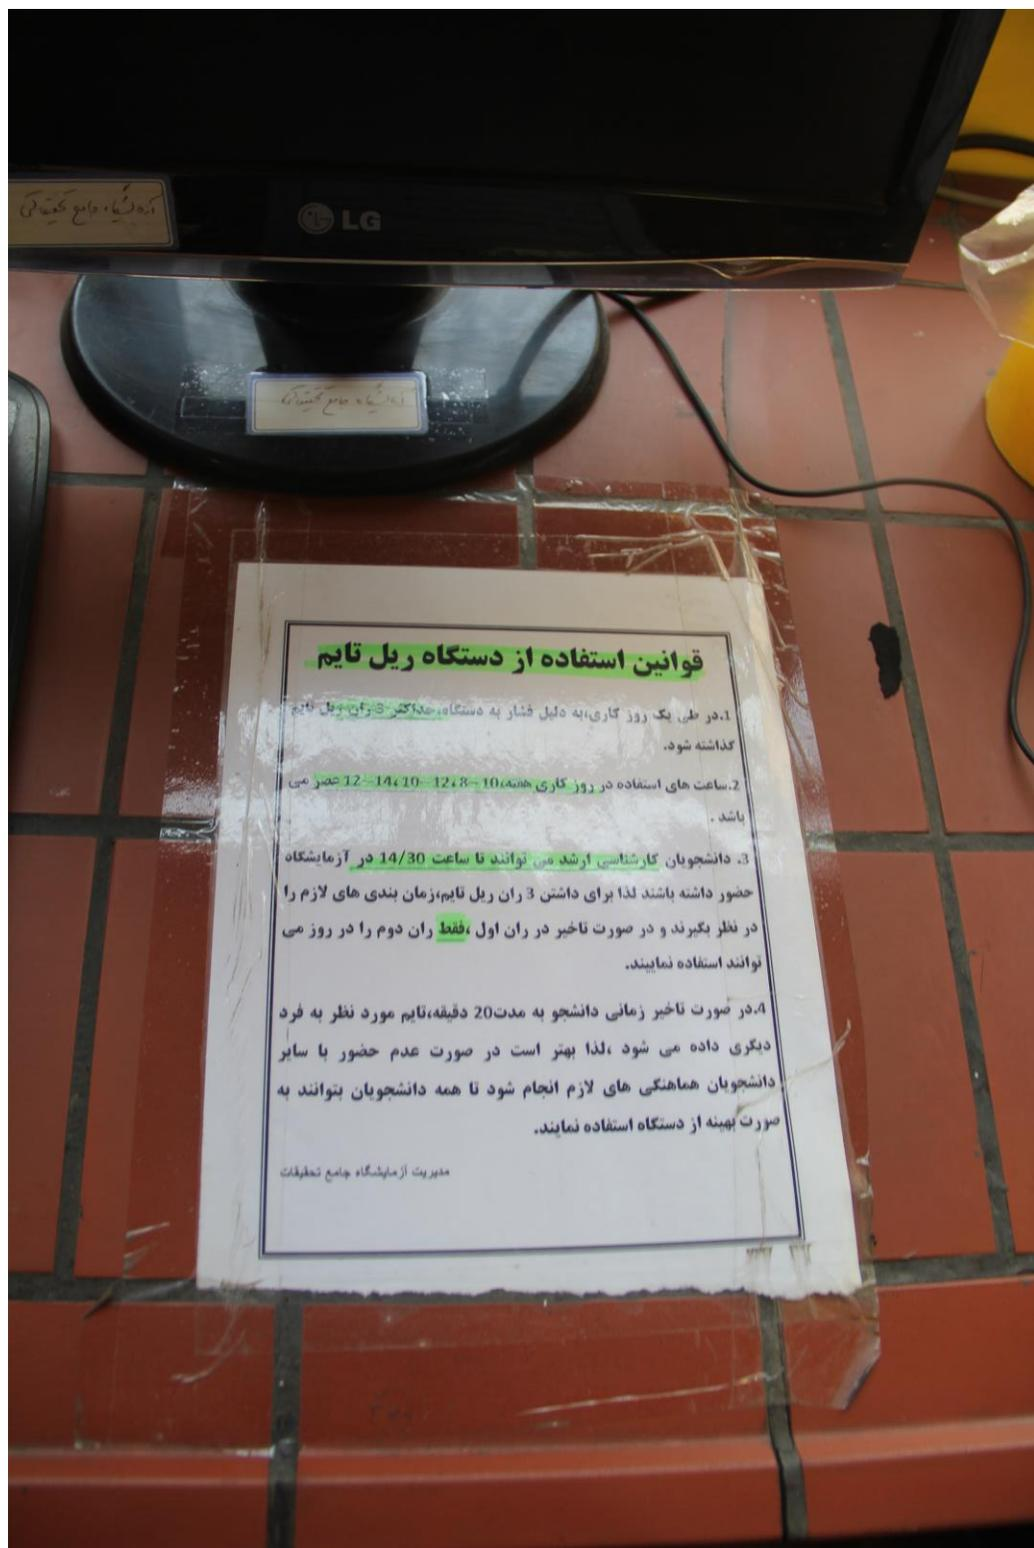 آزمایشگاه جامع تحقیقاتی
LG
آزمایشگاه جامع تحقیقاتی
قوانین استفاده از دستگاه ریل تایم
1.در طی یک روز کاری،به دلیل فشار به دستگاه،حداکثر 3 ران ریل تایم
گذاشته شود.
2.ساعت های استفاده در روز کاری هفته،10-8،12-10،14-12 عصر می
باشد .
3. دانشجویان کارشناسی ارشد می توانند تا ساعت 14/30 در آزمایشگاه
حضور داشته باشند لذا برای داشتن 3 ران ریل تایم،زمان بندی های لازم را
در نظر بگیرند و در صورت تاخیر در ران اول ،فقط ران دوم را در روز می
توانند استفاده نمایند.
4.در صورت تاخیر زمانی دانشجو به مدت20 دقیقه،تایم مورد نظر به فرد
دیگری داده می شود ،لذا بهتر است در صورت عدم حضور با سایر
دانشجویان هماهنگی های لازم انجام شود تا همه دانشجویان بتوانند به
صورت بهینه از دستگاه استفاده نمایند.
مدیریت آزمایشگاه جامع تحقیقات